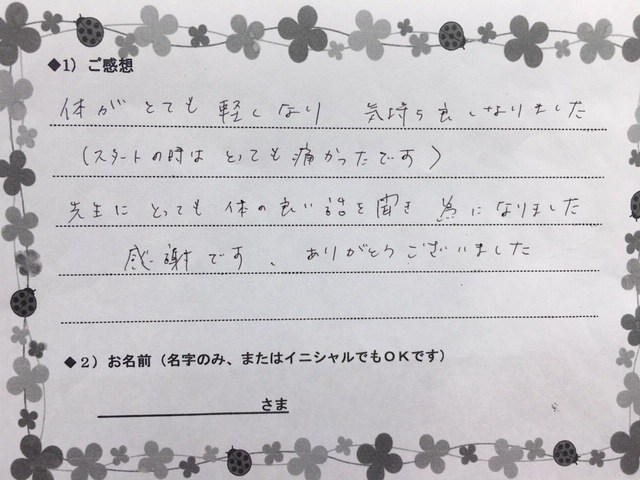 ◆1）ご感想
体がとても軽くなり 気持ち良くなりました
（スタートの時はとっても痛かったです）
先生にとっても体の良い話を聞き 為になりました
感謝です、ありがとうございました
◆2）お名前（名字のみ、またはイニシャルでもOKです）
さま